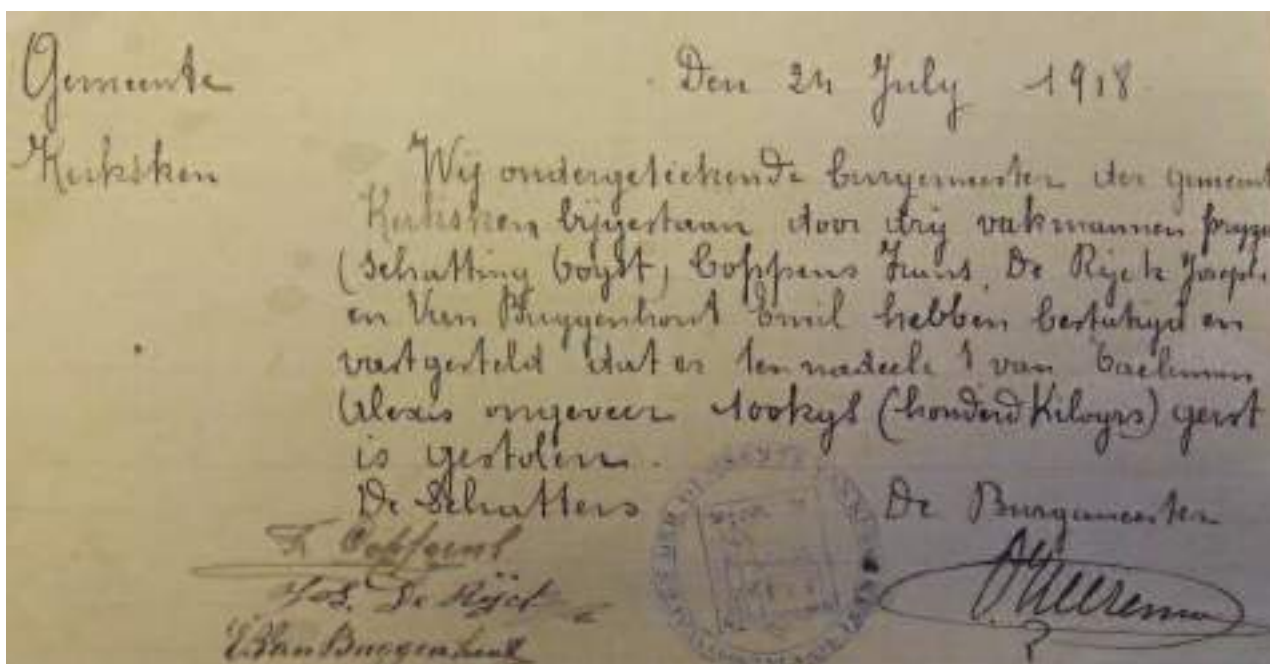 Gemeente
Den 24 July 1918.
Kerksken
Wij ondergeteekende burgemeester der gemeent
Kerksken bijgestaan door drij vakmannen
(schatting Coppens Frans, De Rijck Joseph
en Van Bruggenhout Emil hebben bestatigd en
vastgesteld dat er ten nadeele van
Alexis ongeveer 100kgs (honderd Kilogrs) gerst
is gestolen.
De Schatters
De Burgemeester
F. Coppens
Jos. De Rijck
E. Van Bruggenhout